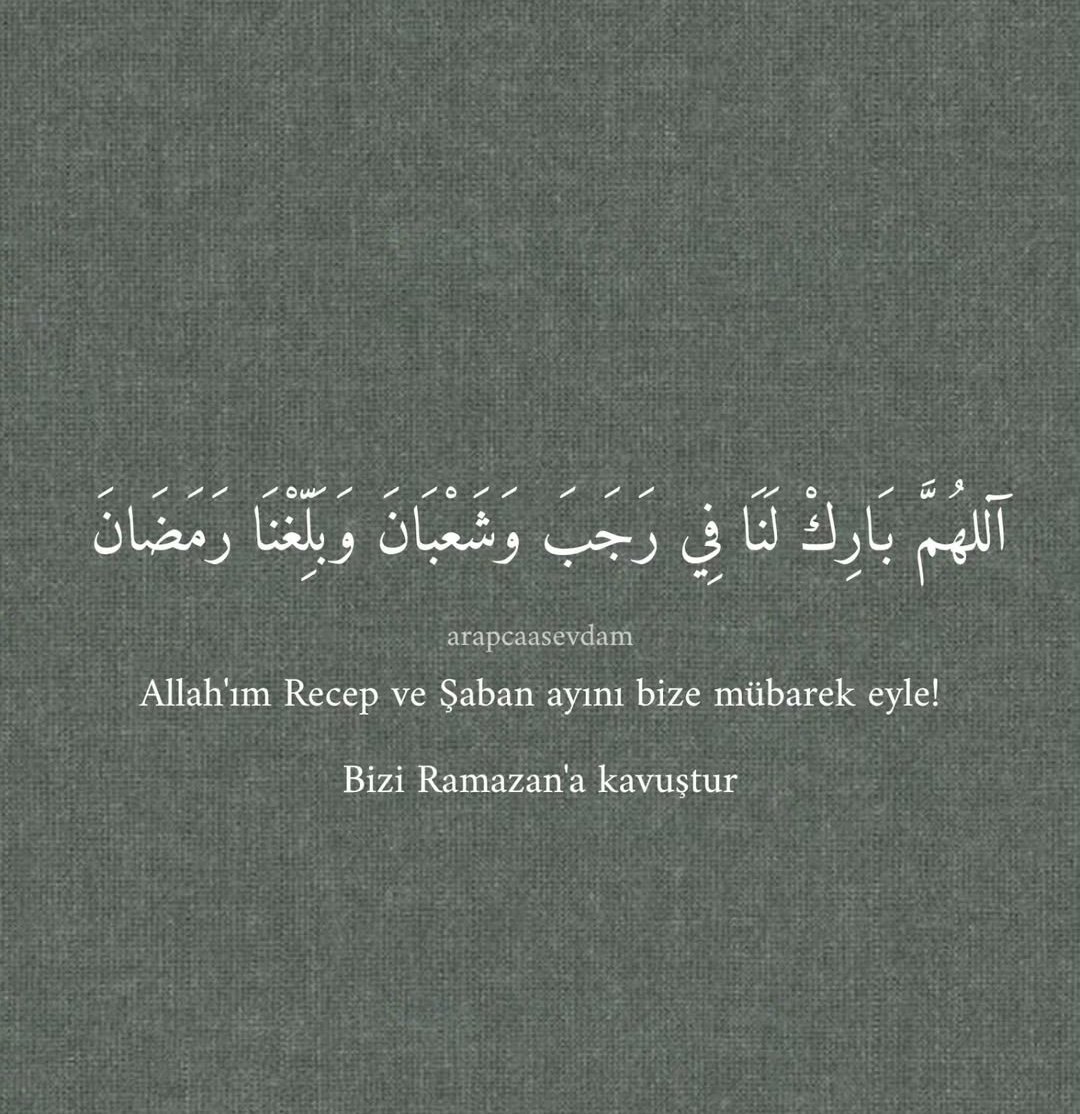 آللهُمَّ بَارِكْ لَنَا فِي رَجَبَ وَشَعْبَانَ وَبَلِّغْنَا رَمَضَانَ
arapcaasevdam
Allah'ım Recep ve Şaban ayını bize mübarek eyle!
Bizi Ramazan'a kavuştur